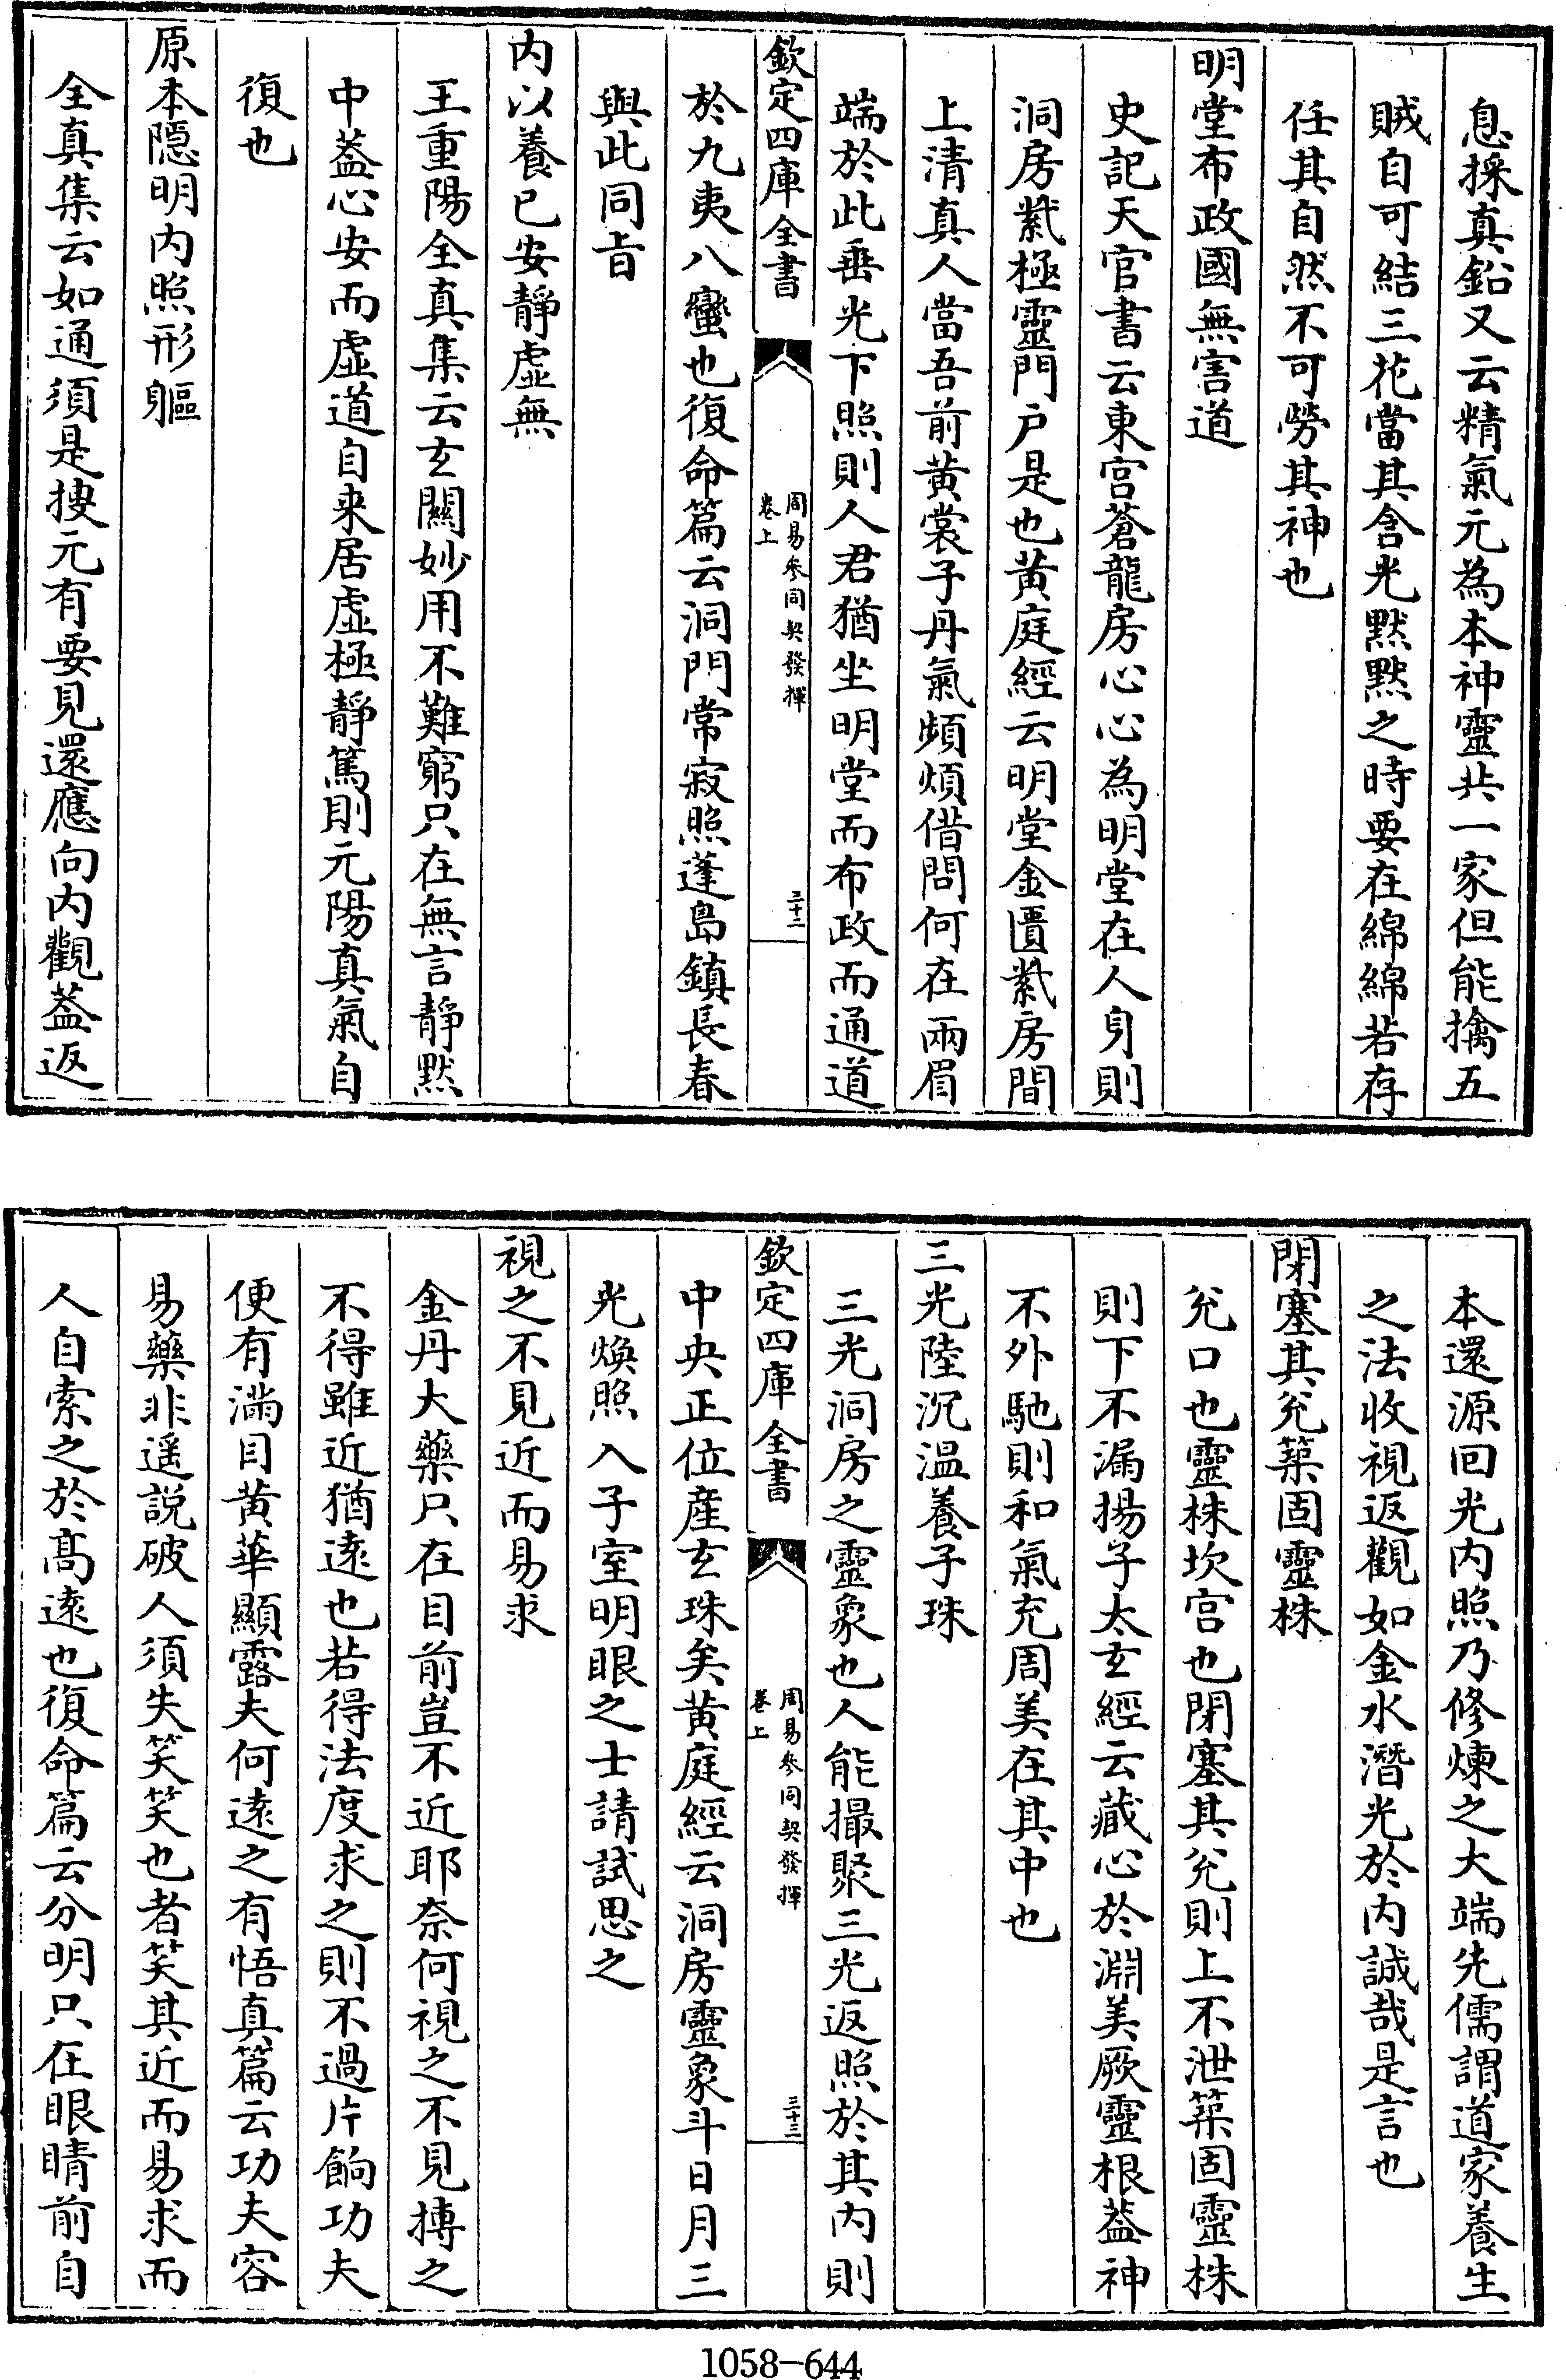 息採真鉛又云精氣元為本神靈共一家但能擒五
賊自可結三花當其含光黙黙之時要在綿綿若存
任其自然不可勞其神也
明堂布政國無害道
史記天官書云東宫蒼龍房心心為明堂在人身則
洞房紫極靈門户是也黄庭經云明堂金匱紫房間
上清真人當吾前黄裳子丹氣頻煩借問何在兩眉
端於此垂光下照則人君猶坐明堂而布政而通道
欽定四庫全書
周易參同契發揮
卷上
三十二
於九夷八蠻也復命篇云洞門常寂照蓬島鎮長春
與此同㫖
内以養已安靜虚無
王重陽全真集云玄關妙用不難窮只在無言靜黙
中葢心安而虚道自来居虚極靜篤則元陽真氣自
復也
原本隠明内照形軀
全真集云如通須是捜元有要見還應向内觀葢返
本還源回光内照乃修煉之大端先儒謂道家養生
之法收視返觀如金水潛光於内誠哉是言也
閉塞其兊築固靈株
兊口也靈株坎宫也閉塞其兊則上不泄築固靈株
則下不漏揚子太玄經云藏心於淵美厥靈根葢神
不外馳則和氣充周美在其中也
三光陸沉温養子珠
三光洞房之靈象也人能撮聚三光返照於其内則
欽定四庫全書
周易參同契發揮
卷上
三十三
中央正位産玄珠矣黄庭經云洞房靈象斗日月三
光煥照入子室明眼之士請試思之
視之不見近而易求
金丹大藥只在目前豈不近耶奈何視之不見搏之
不得雖近猶逺也若得法度求之則不過片餉功夫
便有滿目黄華顯露夫何逺之有悟真篇云功夫容
易藥非遥説破人須失笑笑也者笑其近而易求而
人自索之於髙逺也復命篇云分明只在眼睛前自
1058-644